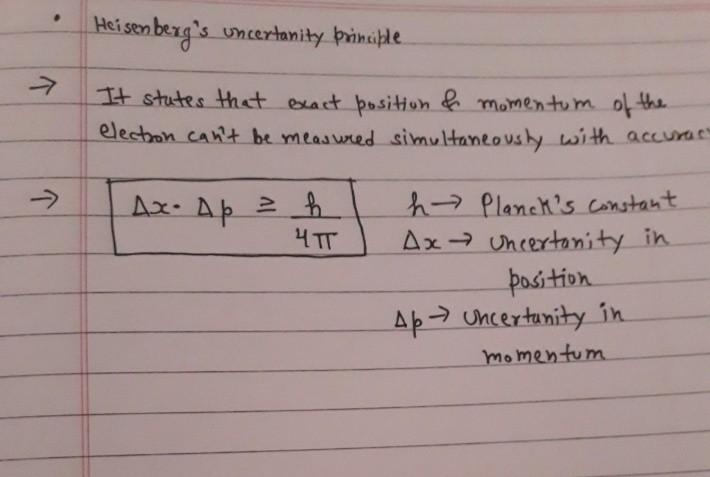 • Heisenberg's uncertanity principle
→ It states that exact position & momentum of the
electron can't be measured simultaneously with accurac
→ Δx · Δp ≥ h/4π
h → Planck's constant
Δx → uncertanity in
position
Δp → uncertanity in
momentum